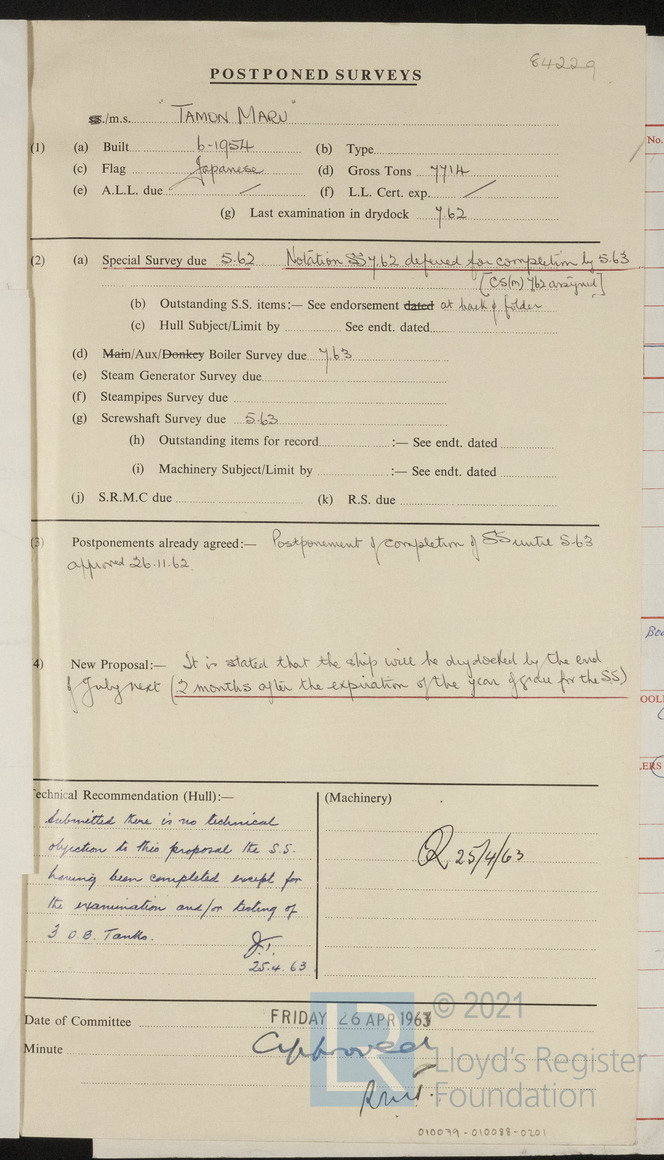 84229
POSTPONED SURVEYS
ss./m.s. "TAMON MARU"
(1) (a) Built 6-1954 (b) Type
(c) Flag Japanese (d) Gross Tons 7714
(e) A.L.L. due (f) L.L. Cert. exp.
(g) Last examination in drydock 7.62
(2) (a) Special Survey due 5.62 Notation SS 7.62 deferred for completion by 5.63
[CS(m) 7.62 assigned]
(b) Outstanding S.S. items:— See endorsement dated at back of folder
(c) Hull Subject/Limit by See endt. dated
(d) Main/Aux/Donkey Boiler Survey due 7.63
(e) Steam Generator Survey due
(f) Steampipes Survey due
(g) Screwshaft Survey due 5.63
(h) Outstanding items for record :— See endt. dated
(i) Machinery Subject/Limit by :— See endt. dated
(j) S.R.M.C due (k) R.S. due
(3) Postponements already agreed:— Postponement of completion of SS until 5.63
approved 26.11.62.
4) New Proposal:— It is stated that the ship will be drydocked by the end
of July next (2 months after the expiration of the year of grace for the SS)
Technical Recommendation (Hull):— (Machinery)
Submitted there is no technical
objection to this proposal the S.S.
having been completed except for
the examination and/or testing of
3 O.B. Tanks.
25.4.63
25/4/63
Date of Committee FRIDAY 26 APR 1963
Minute Approved
LR
© 2021
Lloyd's Register
Foundation
010079-010088-0201
No.